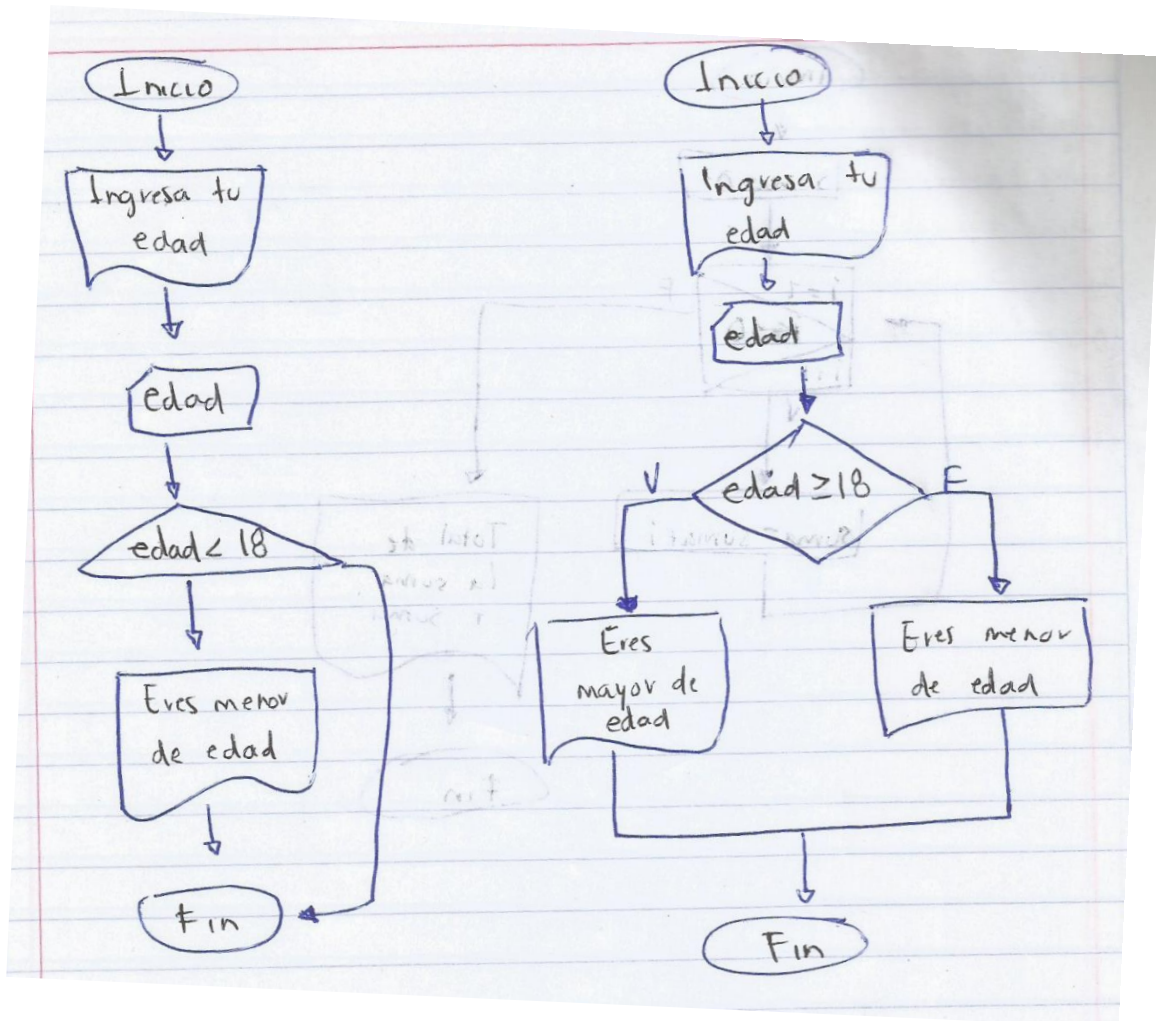 Inicio
Ingresa tu
edad
edad
edad < 18
Eres menor
de edad
Fin
Inicio
Ingresa tu
edad
edad
edad ≥ 18
V
F
Eres
mayor de
edad
Eres menor
de edad
Fin
Total de
la suma
Fin